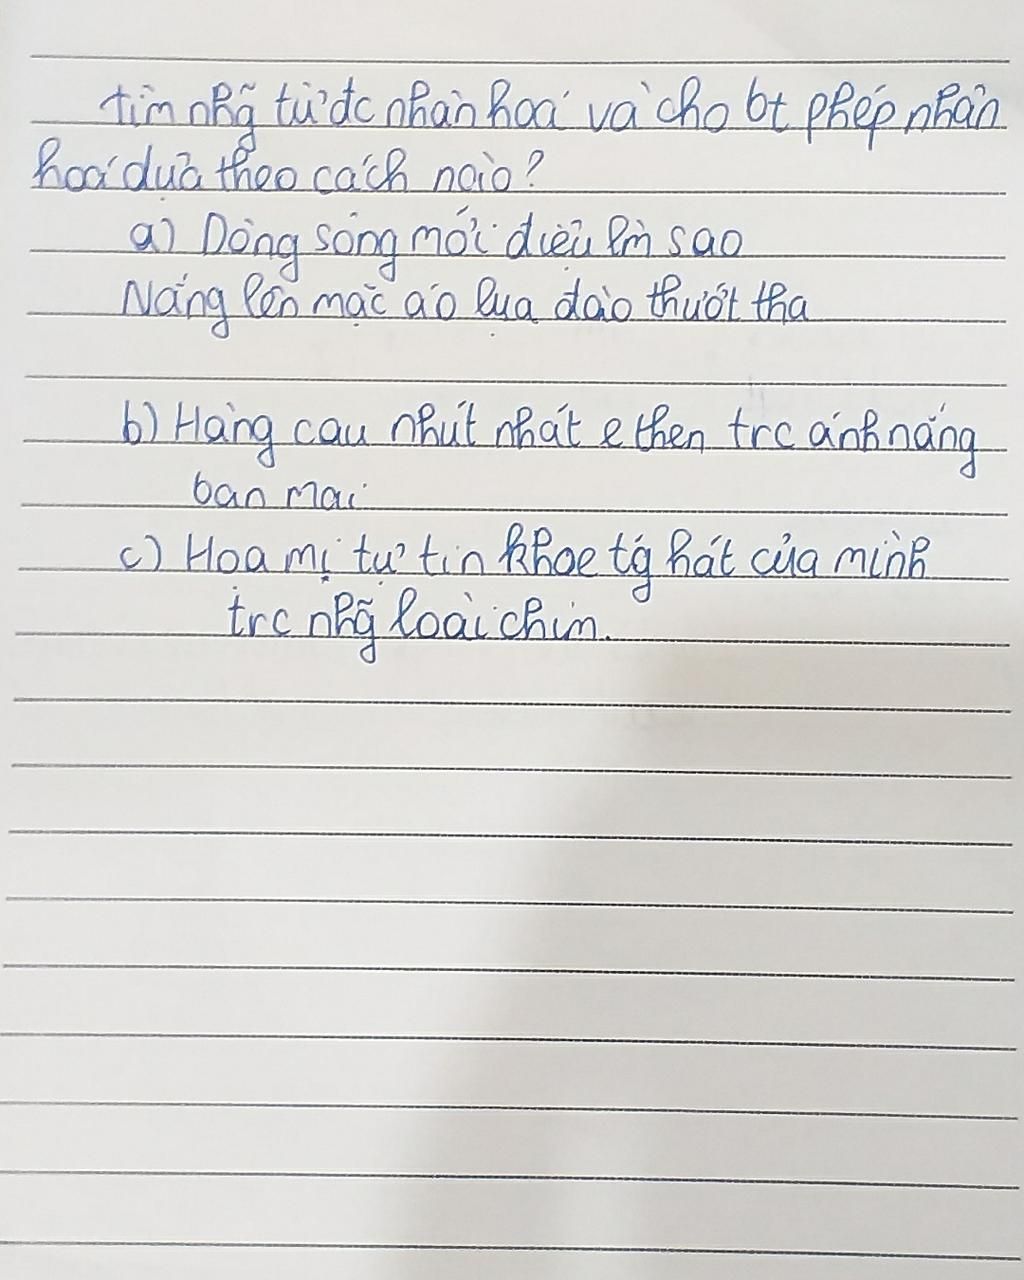 tìm nhg̃ từ đc nhân hoá và cho bt phép nhân
hoá dựa theo cách nào?
a) Dòng sông mới điệu lm̀ sao
Nắng lên mặc áo lụa đào thướt tha
b) Hàng cau nhút nhát e then trc ánh nắng
ban mai
c) Hoạ mị tự tin khoe tg hát của mình
trc nhg̃ loài chim.